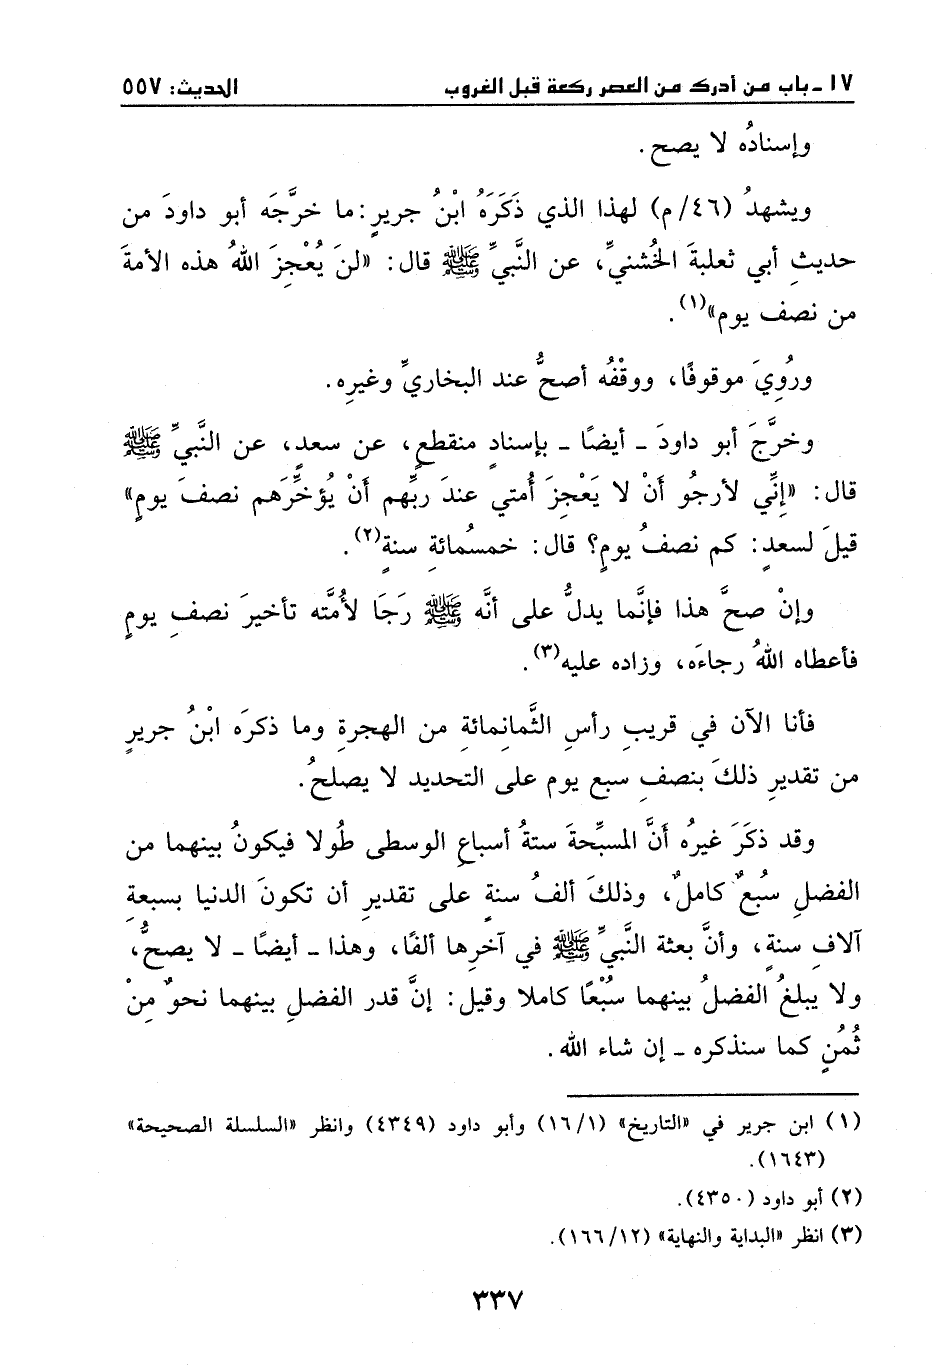 ١٧ ـ باب من أدرك من العصر ركعة قبل الغروب الحديث: ٥٥٧
وإسنادُه لا يصح.
ويشهدُ (٤٦/م) لهذا الذي ذَكَرَهُ ابْنُ جريرٍ: ما خرَّجَه أبو داودَ من
حديثِ أبي ثعلبةَ الخُشنيِّ، عن النَّبيِّ ﷺ قال: «لنَ يُعْجِزَ اللهُ هذه الأمةَ
من نصف يوم»(١).
ورُوِيَ موقوفًا، ووقْفُه أصحُّ عند البخاريِّ وغيرِه.
وخرَّجَ أبو داودَ ـ أيضًا ـ بإسنادٍ منقطعٍ، عن سعدٍ، عن النَّبيِّ ﷺ
قال: «إنِّي لأرجُو أَنْ لا يَعْجِزَ أُمتي عندَ ربِّهم أَنْ يُؤخِّرَهم نصفَ يومٍ»
قيلَ لسعدٍ: كم نصفُ يومٍ؟ قال: خمسُمائةِ سنةٍ(٢).
وإنْ صحَّ هذا فإنَّما يدلُّ على أنَّه ﷺ رَجَا لأُمَّته تأخيرَ نصفِ يومٍ
فأعطاه اللهُ رجاءَه، وزاده عليه(٣).
فأنا الآن في قريبِ رأسِ الثَّمانِمائةِ من الهجرةِ وما ذكرَه ابْنُ جريرٍ
من تقديرِ ذلكَ بنصفِ سبع يوم على التحديد لا يصلحُ.
وقد ذكَرَ غيرُه أنَّ المسبِّحةَ ستةُ أسباعِ الوسطى طُولا فيكونُ بينهما من
الفضلِ سُبعٌ كاملٌ، وذلكَ ألفُ سنةٍ على تقديرِ أن تكونَ الدنيا بسبعةِ
آلافِ سنةٍ، وأنَّ بعثة النَّبيِّ ﷺ في آخرِها ألفًا، وهذا ـ أيضًا ـ لا يصحُّ،
ولا يبلغُ الفضلُ بينهما سُبْعًا كاملا وقيل: إنَّ قدر الفضلِ بينهما نحوٌ مِنْ
ثُمُنٍ كما سنذكره ـ إن شاء الله.
(١) ابن جرير في «التاريخ» (١٦/١) وأبو داود (٤٣٤٩) وانظر «السلسلة الصحيحة»
(١٦٤٣).
(٢) أبو داود (٤٣٥٠).
(٣) انظر «البداية والنهاية» (١٦٦/١٢).
٣٣٧